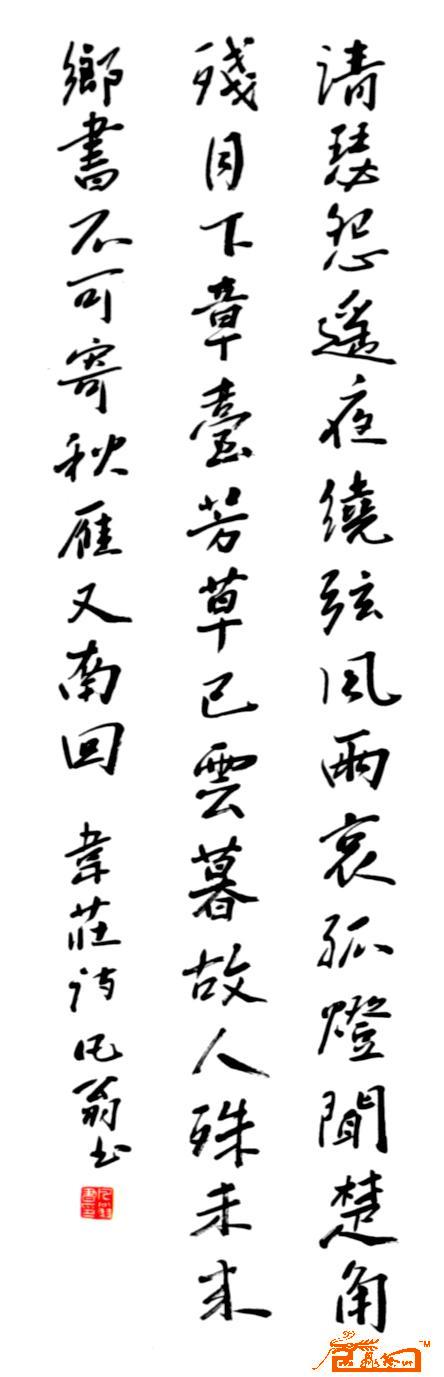 清瑟怨遥夜繞弦風雨哀孤燈聞楚角
殘月下章臺芳草已雲暮故人殊未来
鄉書不可寄秋雁又南回
韋莊詩 翁书